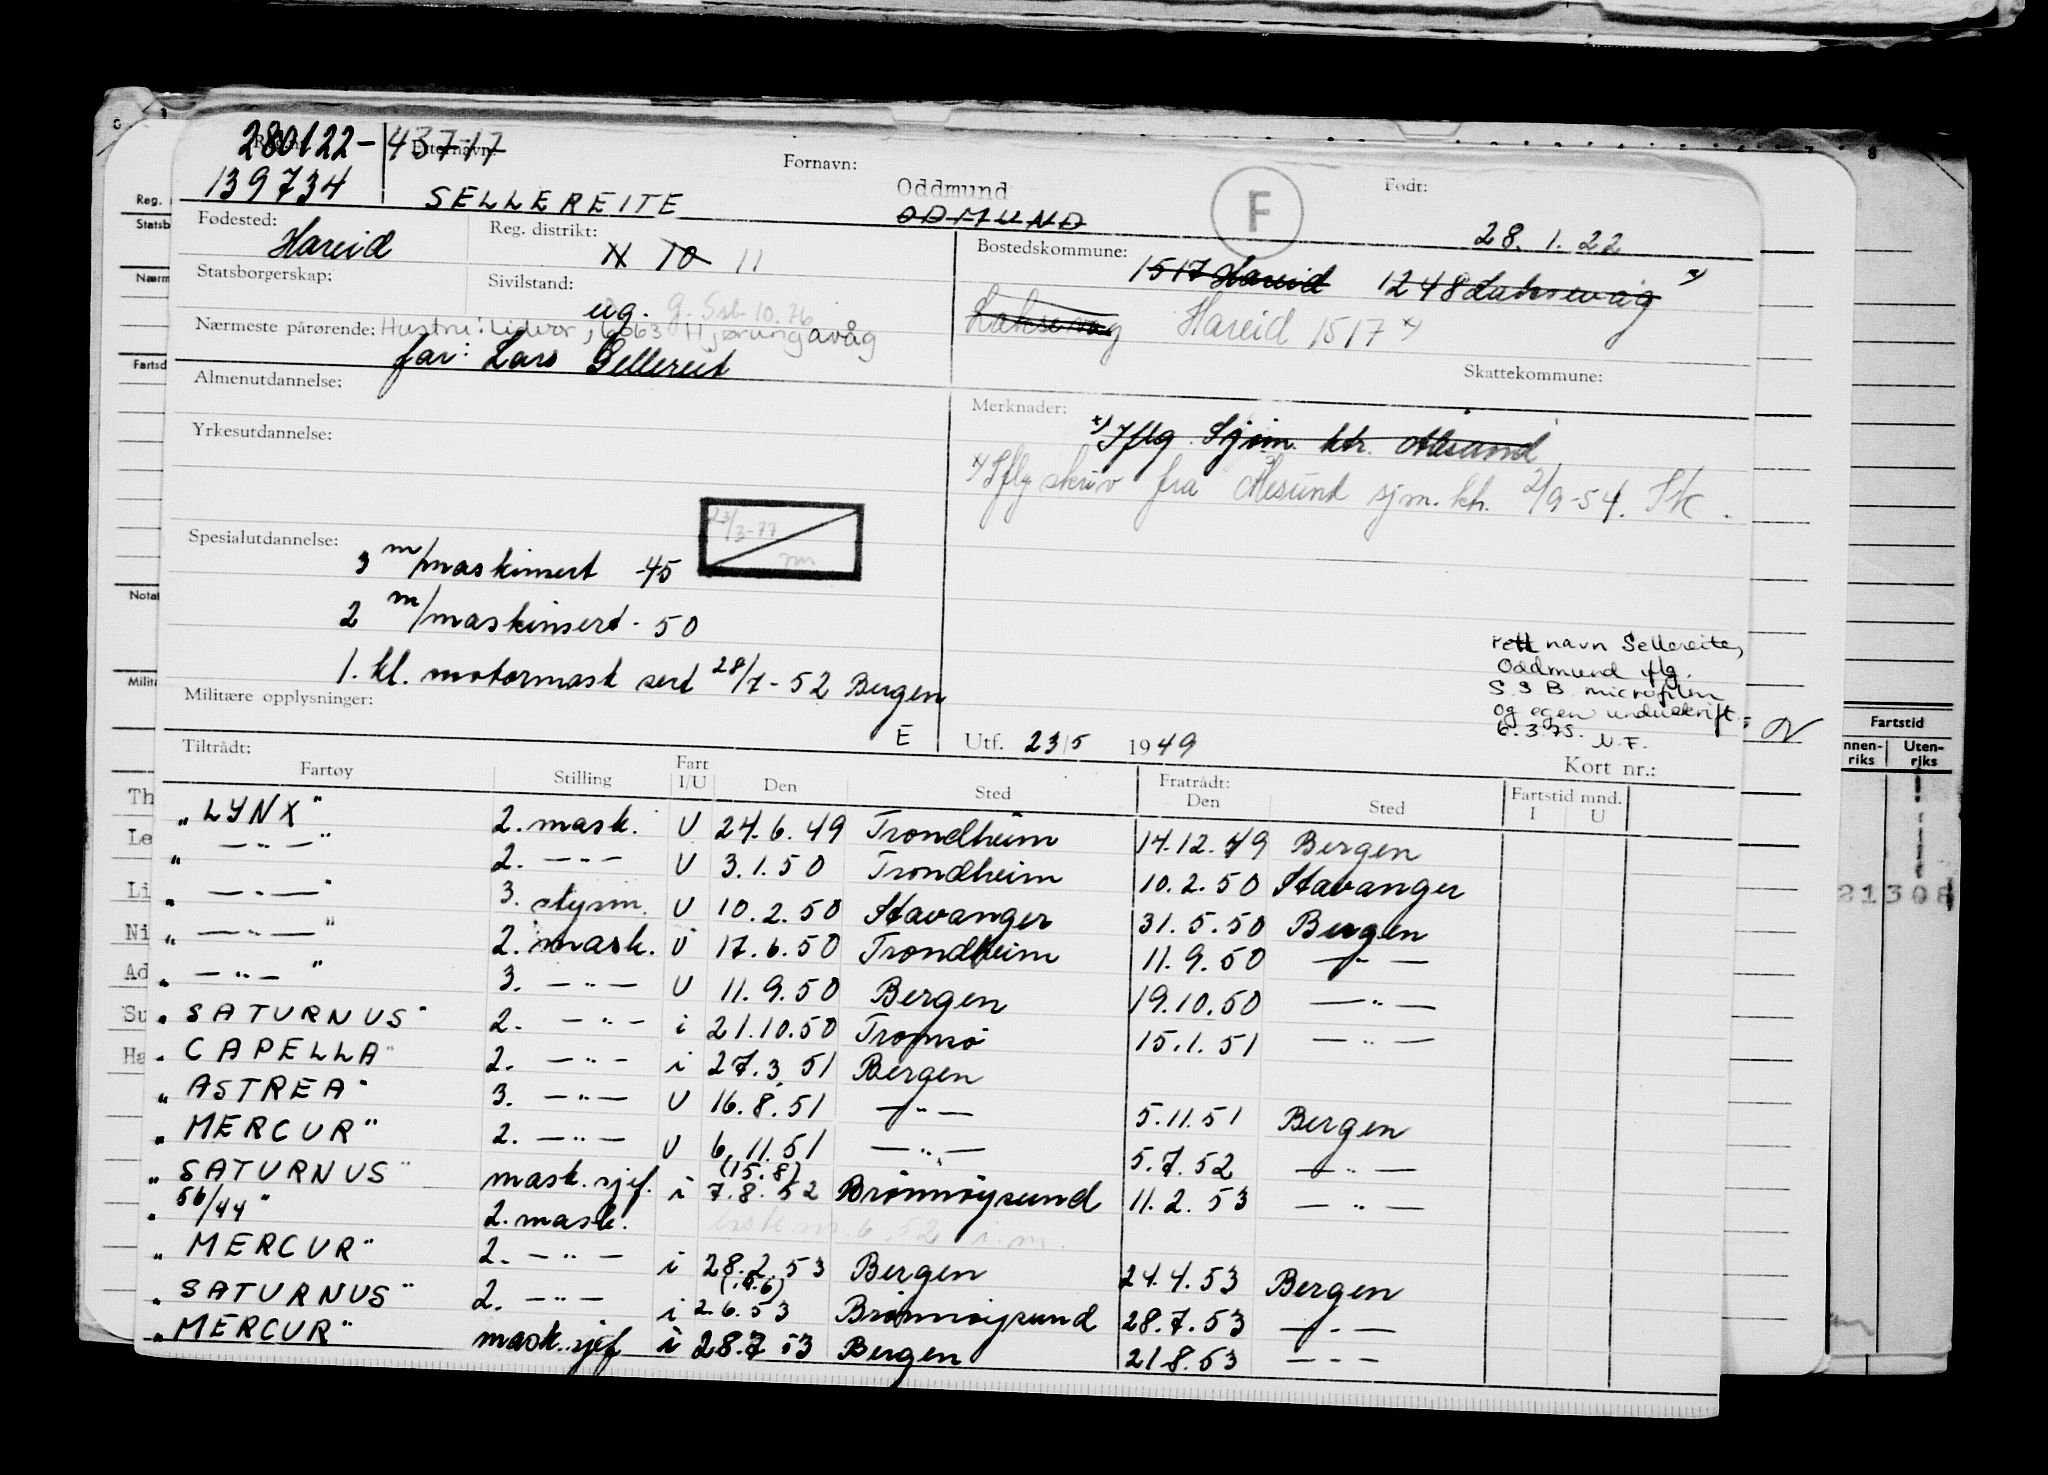 280122-43717
139734
Etternavn:
SELLEREITE
Fornavn:
Oddmund
ODMUND
F
Født:
28. 1. 22
Fødested:
Hareid
Reg. distrikt:
N 10 11
Bostedskommune:
1517 Hareid 1248 Laksevåg x)
Laksevåg Hareid 1517 x)
Statsborgerskap:
Sivilstand:
ug. g. Ssb 10.76
Nærmeste pårørende: Hustru: Lidvor, 6063 Hjørungavåg
far: Lars Sellereit
Skattekommune:
Almenutdannelse:
Merknader:
x) Iflg. Sjøm. ktr. Ålesund
x) Iflg skriv fra Ålesund sjm. ktr. 2/9-54. Sk.
Yrkesutdannelse:
23/3-77
m
Spesialutdannelse:
3 m/maskinsert -45
2 m/maskinsert - 50
1. kl. motormask sert 28/7-52 Bergen
rett navn Sellereite,
Oddmund iflg.
S.S.B. microfilm
og egen underskrift
6.3.75. N.F.
Militære opplysninger:
E Utf. 23/5 1949
Kort nr.:
Tiltrådt:
Fartøy Stilling Fart I/U Den Sted Fratrådt: Den Sted Fartstid mnd. I U
"LYNX" 2. mask. U 24.6.49 Trondheim 14.12.49 Bergen
" —"— " 2. —"— U 3.1.50 Trondheim 10.2.50 Stavanger
" —"— " 3. styrm. U 10.2.50 Stavanger 31.5.50 Bergen
" —"— " 2. mask. U 17.6.50 Trondheim 11.9.50 —"—
" —"— " 3. —"— U 11.9.50 Bergen 19.10.50 —"—
"SATURNUS" 2. —"— i 21.10.50 Tromsø 15.1.51 —"—
"CAPELLA" 2. —"— i 27.3.51 Bergen
"ASTREA" 3. —"— U 16.8.51 —"— 5.11.51 Bergen
"MERCUR" 2. —"— U 6.11.51 —"— 5.7.52 —"—
"SATURNUS" mask.sjef. i (15.8) 7.8.52 Brønnøysund 11.2.53 —"—
" 56/44 " 2. mask.
"MERCUR" 2. —"— i 28.2.53 Bergen 24.4.53 Bergen
"SATURNUS" 2. —"— i 2.6.53 Brønnøysund 28.7.53 —"—
"MERCUR" mask.sjef i 28.7.53 Bergen 21.8.53 —"—
Reg.
Statsb
Nærm
Fartsd
Notat
Milit
Th
Le
Li
Ni
Ad
Su
Ha
Fartstid
nnen-
riks
Uten-
riks
21308